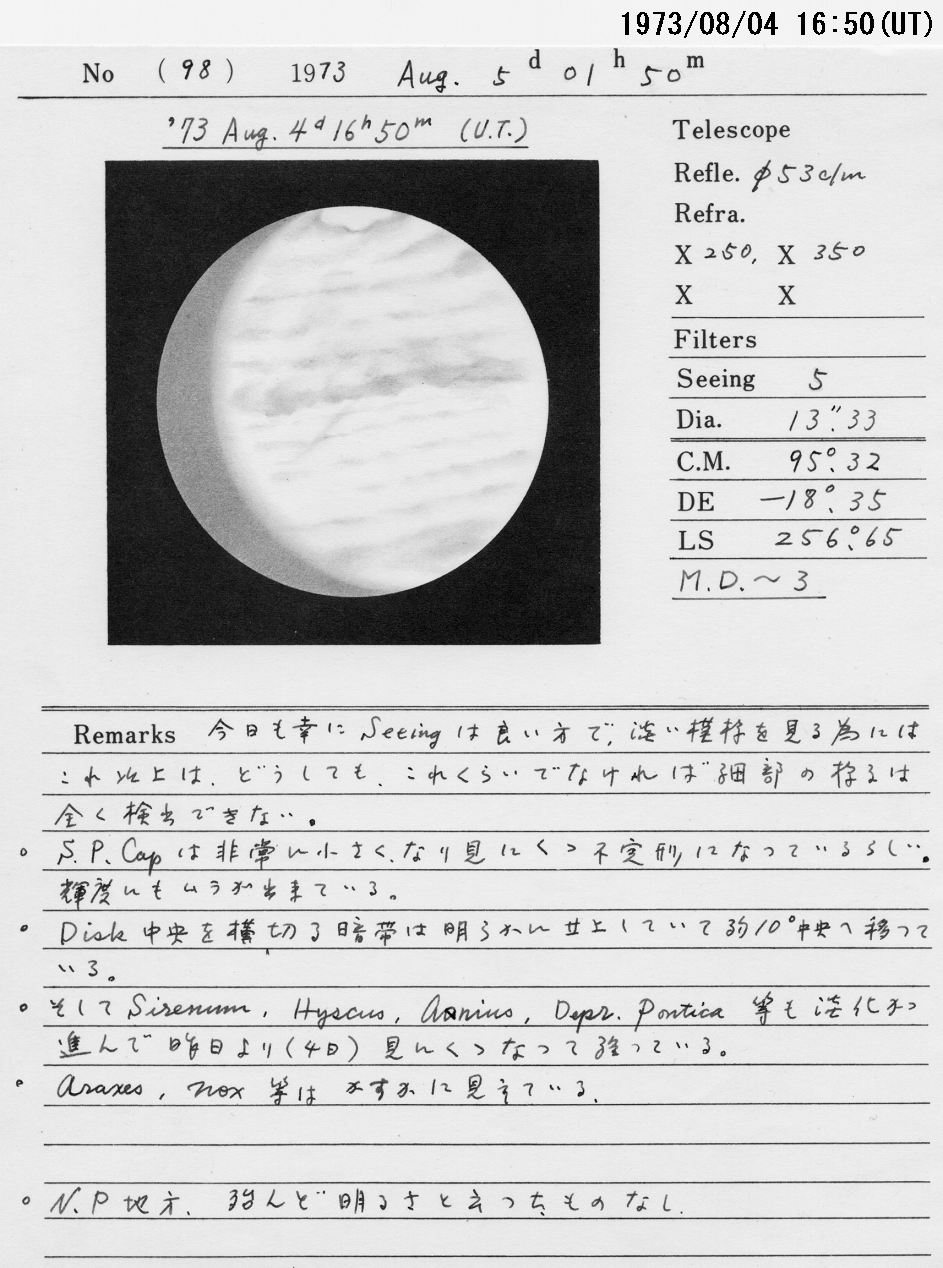 1973/08/04 16:50(UT)
No (98) 1973 Aug. 5 d 01 h 50 m
'73 Aug. 4d 16h 50m (U.T.)
Telescope
Refle. φ53c/m
Refra.
X 250, X 350
X X
Filters
Seeing 5
Dia. 13".33
C.M. 95°.32
DE −18°.35
LS 256°.65
M.D.〜3
Remarks 今日も幸に Seeing は良い方で、淡い模様を見る為には
これ以上は、どうしても、これくらいでなければ細部の様子は
全く検出できない。
。 S.P. Cap は非常に小さくなり見にくつ不定形になっているらしい。
輝度にもムラが出来ている。
。 Disk 中央を横切る暗帯は明らかに北上していて約10°中央へ移って
いる。
。 そして Sirenum, Hyscus, Aonius, Depr. Pontica 等も淡化が
進んで昨日より(4日)見にくつなって残っている。
。 Araxes, nox 等はかすかに見えている.
。 N.P 地方. 殆んど明るさと云ったものなし.